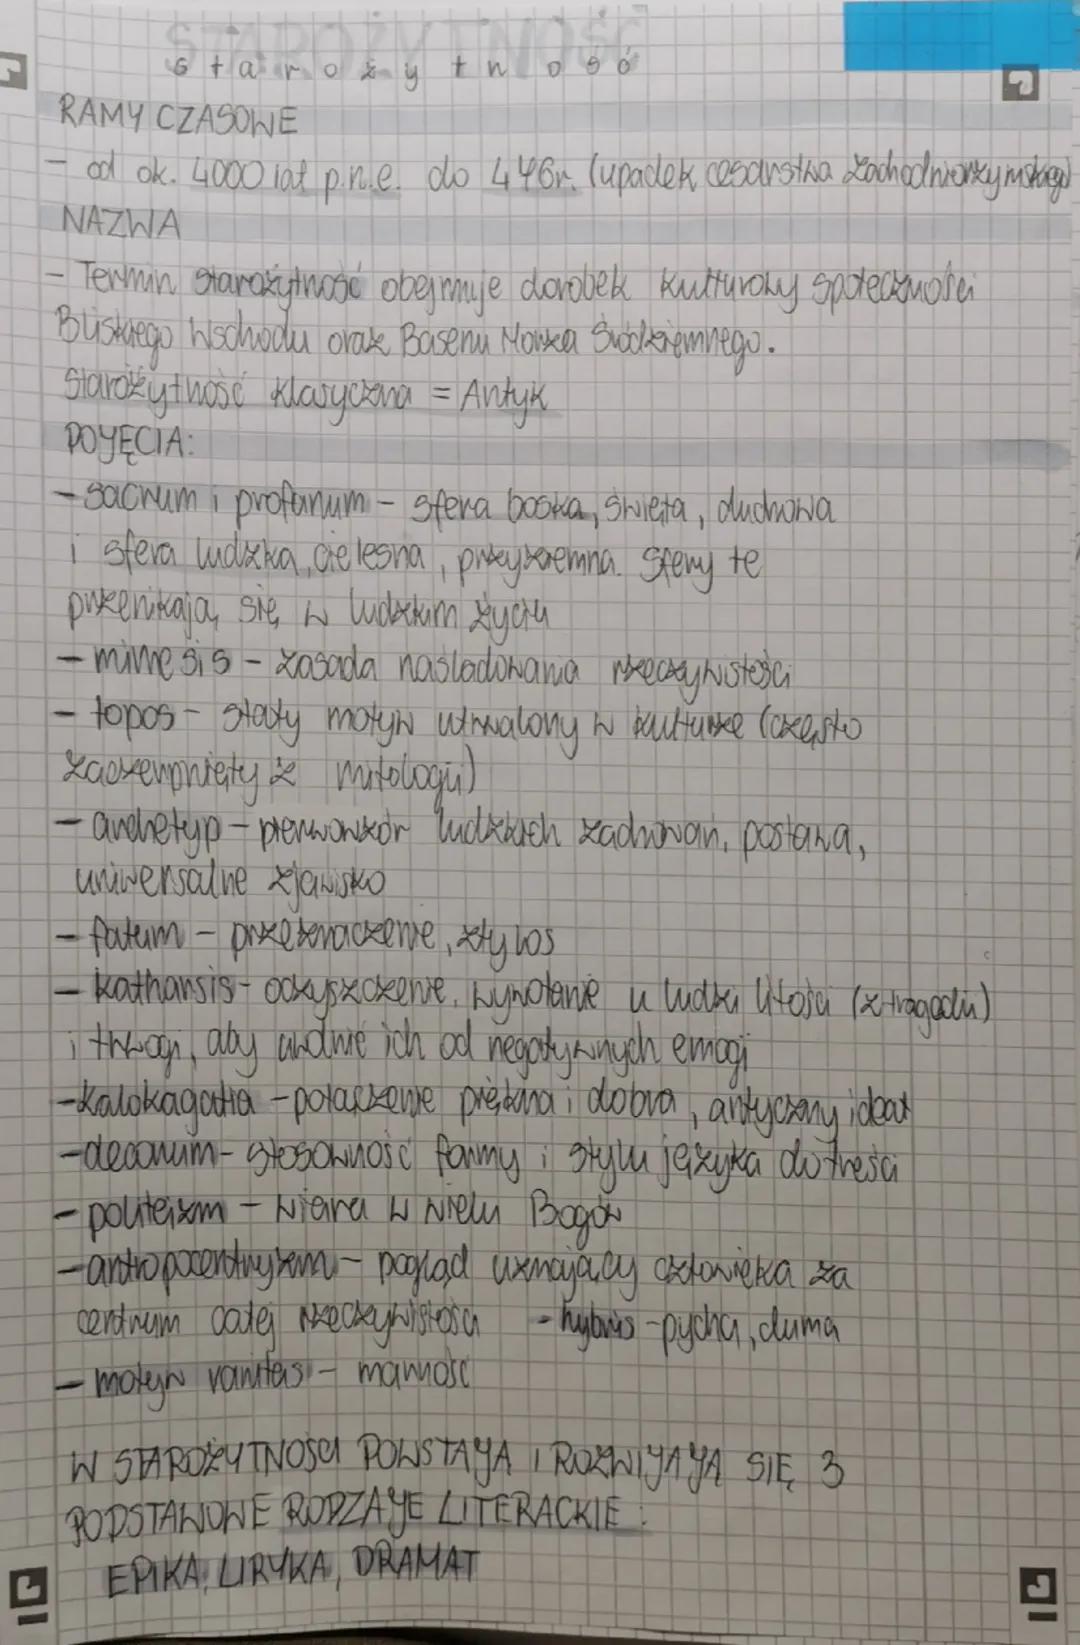 STAROŻYTNOŚĆ
starożytność
RAMY CZASOWE
- od ok. 4000 lat p.n.e. do 476r. (upadek cesarstwa zachodniorzymskiego)
NAZWA
- Termin starożytność obejmuje dorobek kulturowy społeczności
Bliskiego Wschodu oraz Basenu Morza Śródziemnego.
Starożytność klasyczna = Antyk
POJĘCIA:
- sacrum i profanum - sfera boska, święta, duchowa
i sfera ludzka, cielesna, przyziemna. Sfery te
przenikają się w ludzkim życiu
- mimesis - zasada naśladowania rzeczywistości
- topos - stały motyw utrwalony w kulturze (często
zaczerpnięty z mitologii)
- archetyp - pierwowzór ludzkich zachowań, postawa,
uniwersalne zjawisko
- fatum - przeznaczenie, zły los
- katharsis - oczyszczenie, wywołanie u ludzi litości (z tragedii)
i trwogi, aby uwolnić ich od negatywnych emocji
- kalokagatia - połączenie piękna i dobra, antyczny ideał
- decorum - stosowność formy i stylu języka do treści
- politeizm - wiara w wielu Bogów
- antropocentryzm - pogląd uznający człowieka za
centrum całej rzeczywistości - hybris - pycha, duma
- motyw vanitas - marność
W STAROŻYTNOŚCI POWSTAJĄ I ROZWIJAJĄ SIĘ 3
PODSTAWOWE RODZAJE LITERACKIE:
EPIKA, LIRYKA, DRAMAT